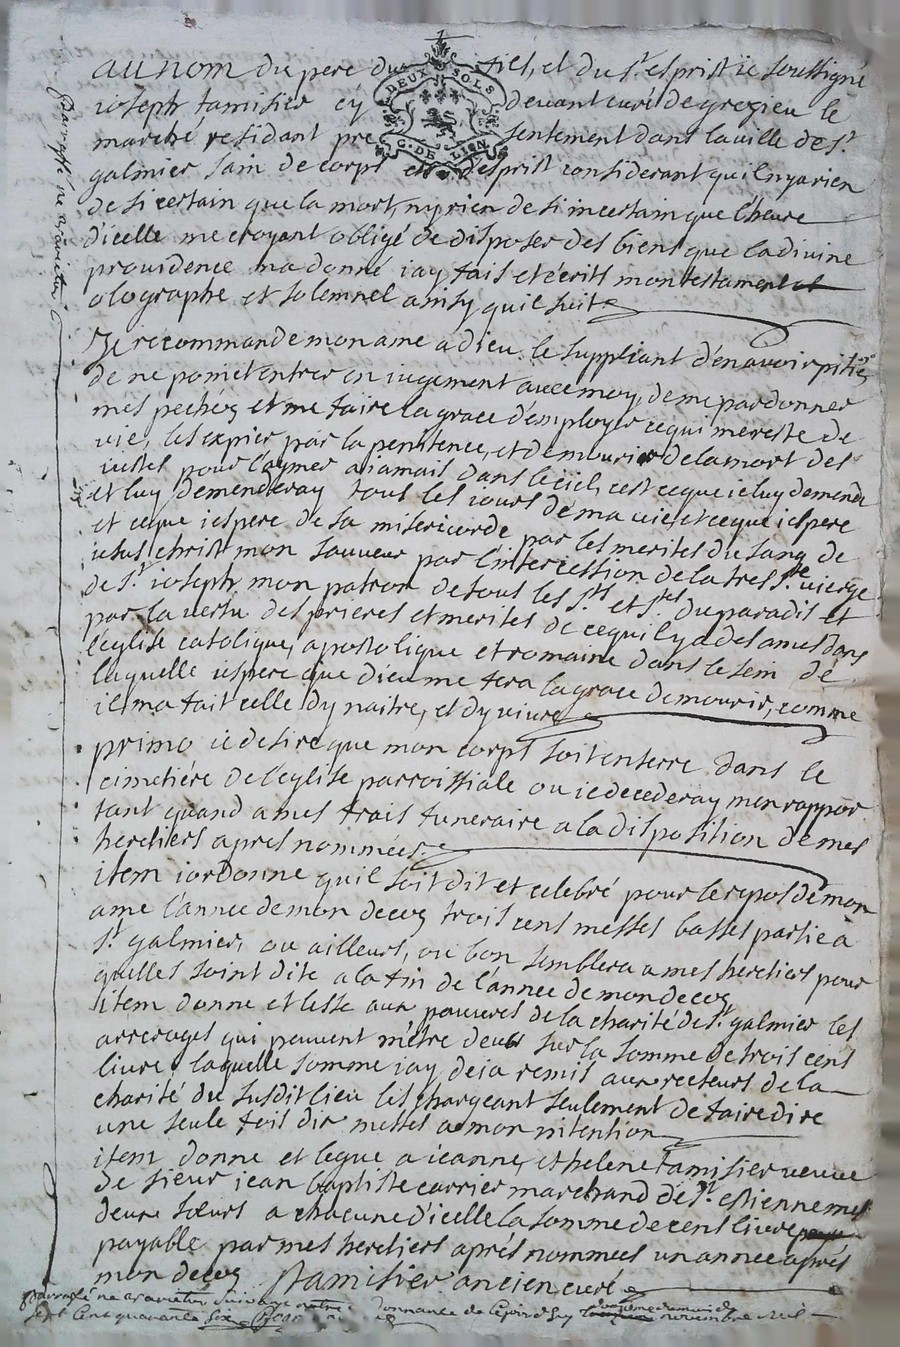 au nom du pere du fiel, et du st esprit ie soussigné
ioseph tamisier cy devant curé de grezieu le
marché residant presentement dans la ville de st
galmier sain de corps et d'esprit considerant quil ny a rien
de si certain que la mort, ny rien de si incertain que l'heure
d'icelle me croyant obligé de disposer des biens que la divine
providence ma donné iay fais et écrits mon testament
olographe et solemnel ainsy quil suit
Je recommande mon ame a dieu le suppliant d'en avoir pitié
de ne point entrer en iugement avec moy, de me pardonner
mes pechéz et me faire la grace d'employer ce qui me reste de
vie, les expier par la penitence, et de mourir de la mort des
iustes pour l'aymer a iamais dans le ciel, cest ce que ie luy demende
et luy demenderay tous les iours de ma vie, et ce que iespere
et ce que iespere de sa misericorde par les merites du sang de
iesus christ mon sauveur par l'intercession de la tres ste vierge
de st ioseph mon patron de tous les sts et stes du paradis et
par la vertu des prieres et merites de ce quil y a des ames dans
l'eglise catolique, apostolique et romaine dans le sein de
laquelle iespere que dieu me fera la grace de mourir, comme
il ma fait celle dy naitre, et dy vivre
primo ie desire que mon corps soit enterre dans le
cimetiére de l'eglise parroissiale ou ie decederay men rappor
tant quand a mes frais funeraire a la disposition de mes
heretiers apres nommées
item iordonne quil soit dit et celebré pour le repos de mon
ame l'annee de mon decez trois cens messes basses partie a
st galmier, ou ailleurs, ou bon semblera a mes heretiers pour
quelles soint dite a la fin de l'annee de mon decez
item donne et lesse aux pauvres de la charité de st galmier les
arrerages qui peuvent m'étre deus sur la somme de trois cens
livres laquelle somme iay deia remis aux recteurs de la
charité du susdit lieu les chargeant seulement de faire dire
une seule fois dix messes a mon intention
item donne et legue a ieanne, et helene tamisier veuve
de sieur jean baptiste carrier marchand de st estienne mes
deux sœurs a chacune d'icelle la somme de cent livres
payable par mes heretiers aprés nommees un annee aprés
mon decez tamisier ancien curé
DEUX SOLS
G. DE LION
Paraffé ne varietur
Parraffé ne varietur suivant notre ordonnance de ce jourd'huy novembre mil
sept cent quarante six